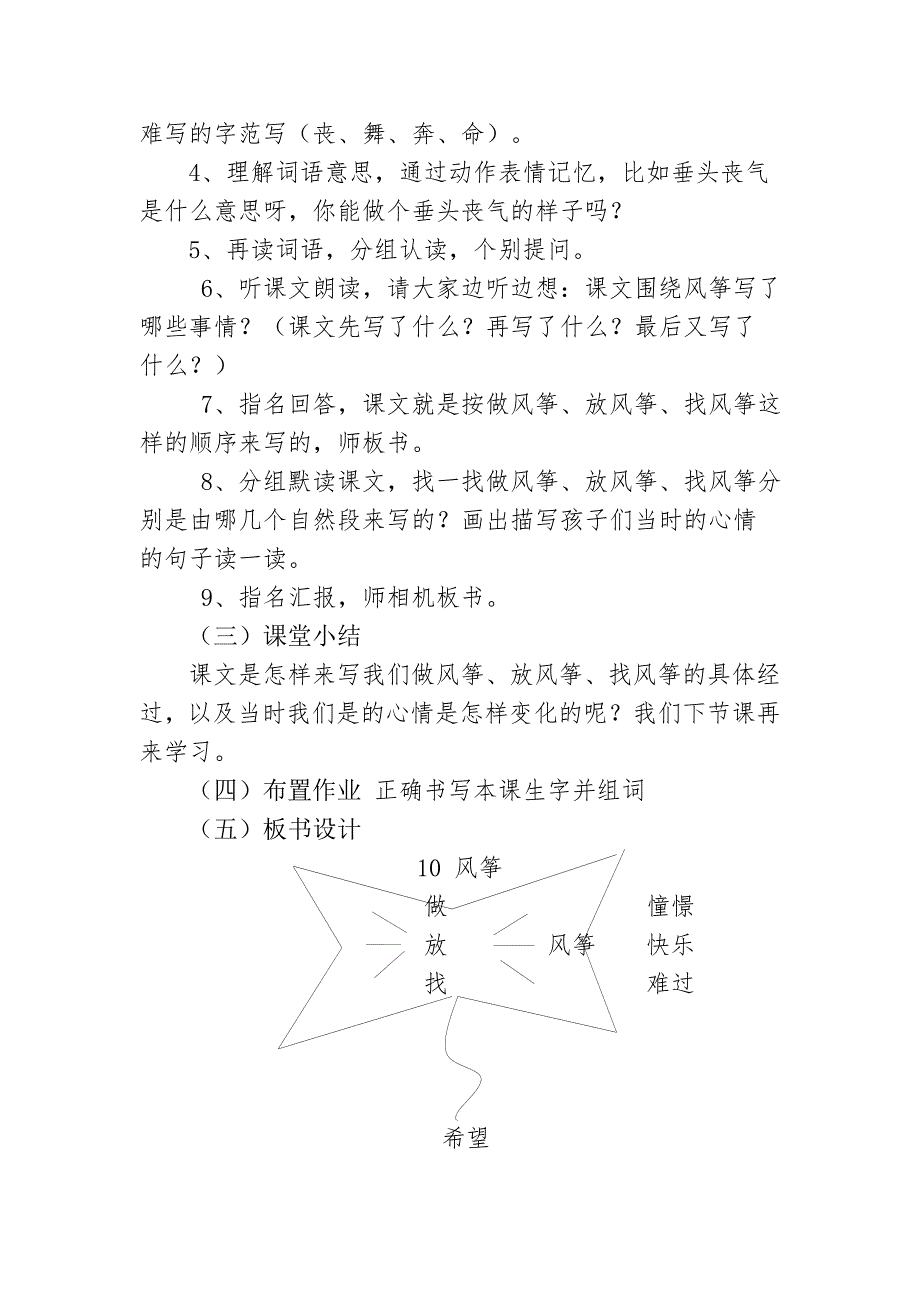 难写的字范写（丧、舞、奔、命）。
4、理解词语意思，通过动作表情记忆，比如垂头丧气
是什么意思呀，你能做个垂头丧气的样子吗？
5、再读词语，分组认读，个别提问。
6、听课文朗读，请大家边听边想：课文围绕风筝写了
哪些事情？（课文先写了什么？再写了什么？最后又写了
什么？）
7、指名回答，课文就是按做风筝、放风筝、找风筝这
样的顺序来写的，师板书。
8、分组默读课文，找一找做风筝、放风筝、找风筝分
别是由哪几个自然段来写的？画出描写孩子们当时的心情
的句子读一读。
9、指名汇报，师相机板书。
（三）课堂小结
课文是怎样来写我们做风筝、放风筝、找风筝的具体经
过，以及当时我们是的心情是怎样变化的呢？我们下节课再
来学习。
（四）布置作业 正确书写本课生字并组词
（五）板书设计
10 风筝
做 憧憬
放 风筝 快乐
找 难过
希望